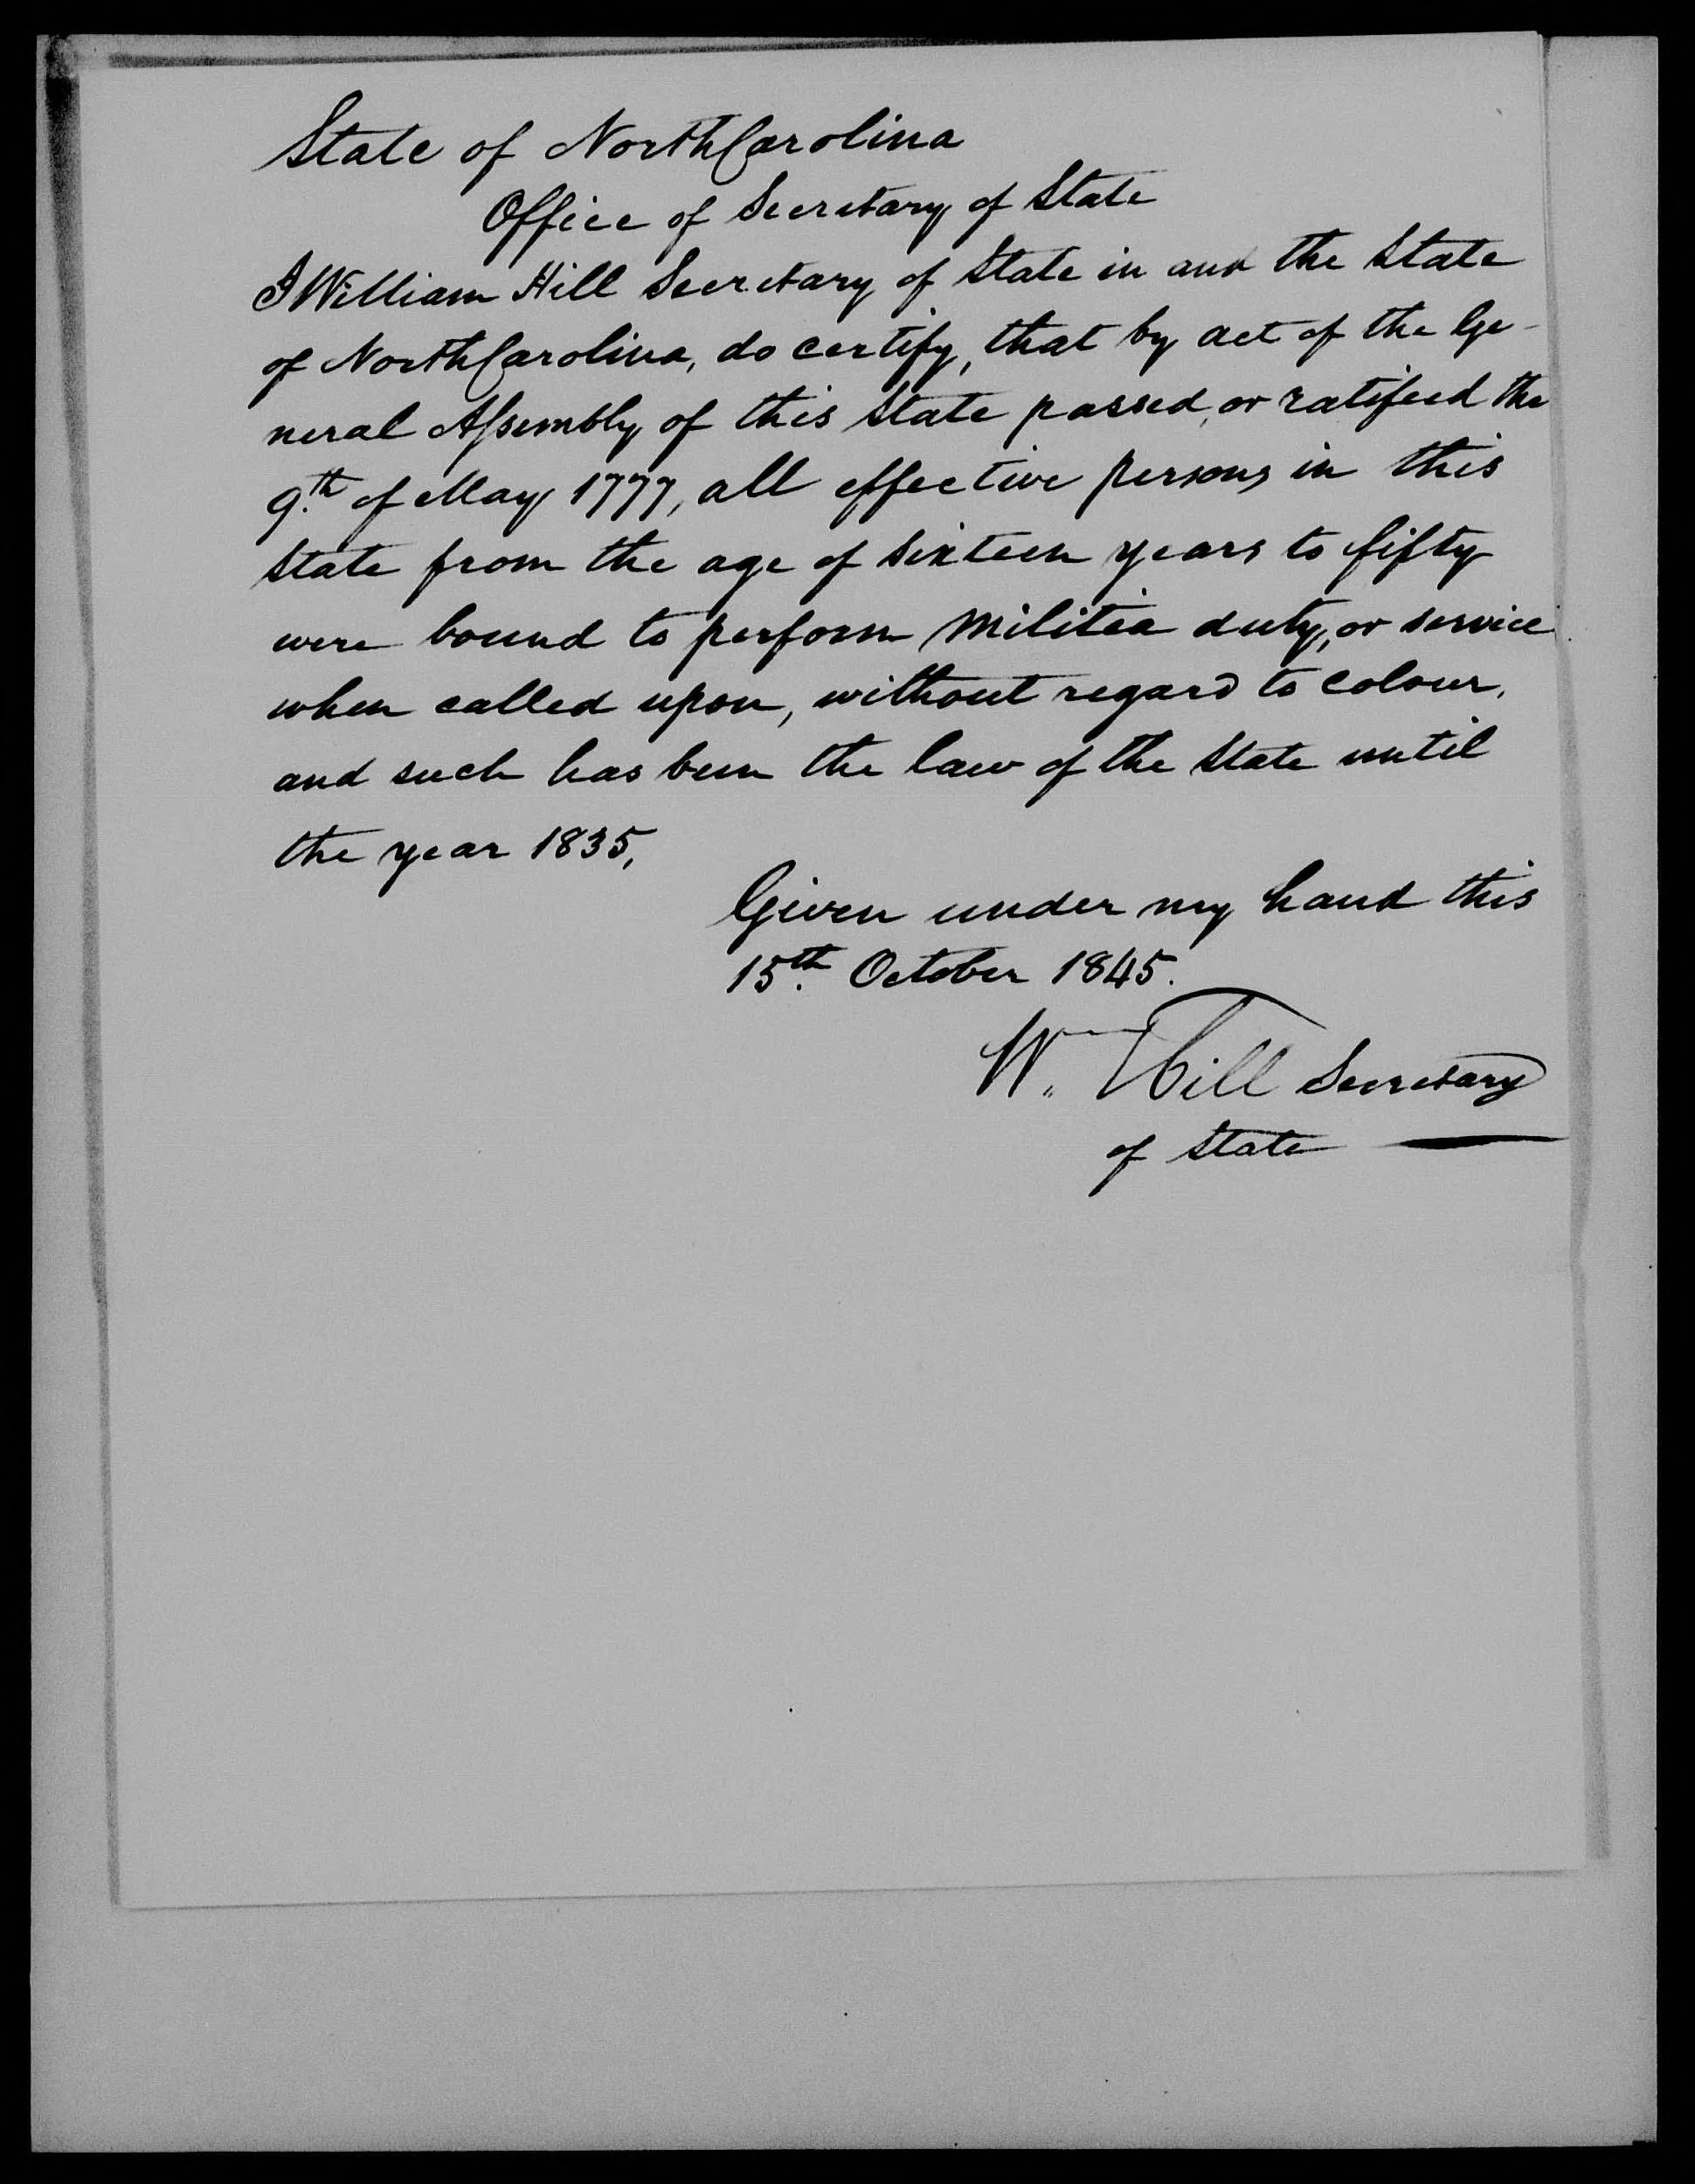 State of North Carolina
Office of Secretary of State
I William Hill Secretary of State in and the State
of North Carolina, do certify, that by act of the Ge-
neral Assembly of this State passed, or ratifeed the
9th of May 1777, all effective persons in this
State from the age of sixteen years to fifty
were bound to perform Militia duty, or service
when called upon, without regard to colour,
and such has been the law of the State until
the year 1835,
Given under my hand this
15th October 1845.
Wm Hill Secretary
of State